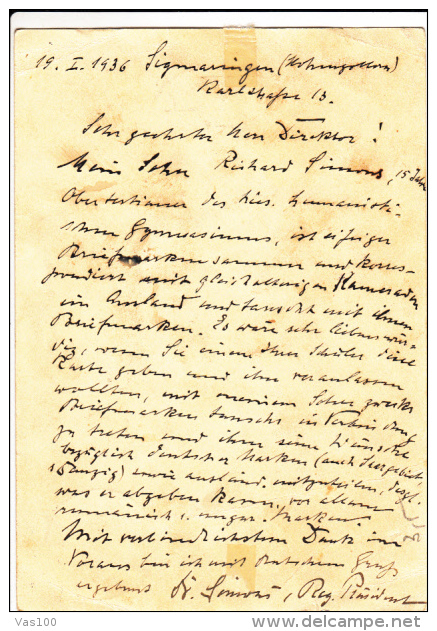 19. I. 1936 Sigmaringen (Hohenzollern)
Karlstraße 13.
Sehr geehrter Herr Direktor!
Mein Sohn Richard Simons, 15 Jahre
Obertertianer des hies. humanisti-
schen Gymnasiums, ist eifriger
Briefmarkensammler und korres-
pondiert mit gleichaltrigen Kameraden
im Ausland und tauscht mit ihnen
Briefmarken. Es wäre sehr liebenswür-
dig, wenn Sie einem Ihrer Schüler diese
Karte geben und ihn veranlassen
wollten, mit meinem Sohn zwecks
Briefmarken tauschs in Verbindung
zu treten und ihm seine Wünsche
bezüglich deutscher Marken (auch Saargebiet,
Danzig) sowie ausland. mitzuteilen, desgl.
was er abgeben kann, vor allem
rumänisch u. ungar. Marken.
Mit verbindlichstem Dank im
Voraus bin ich mit deutschem Gruß
ergebenst Dr. Simons, Reg. Präsident
Vas100
delcampe.net